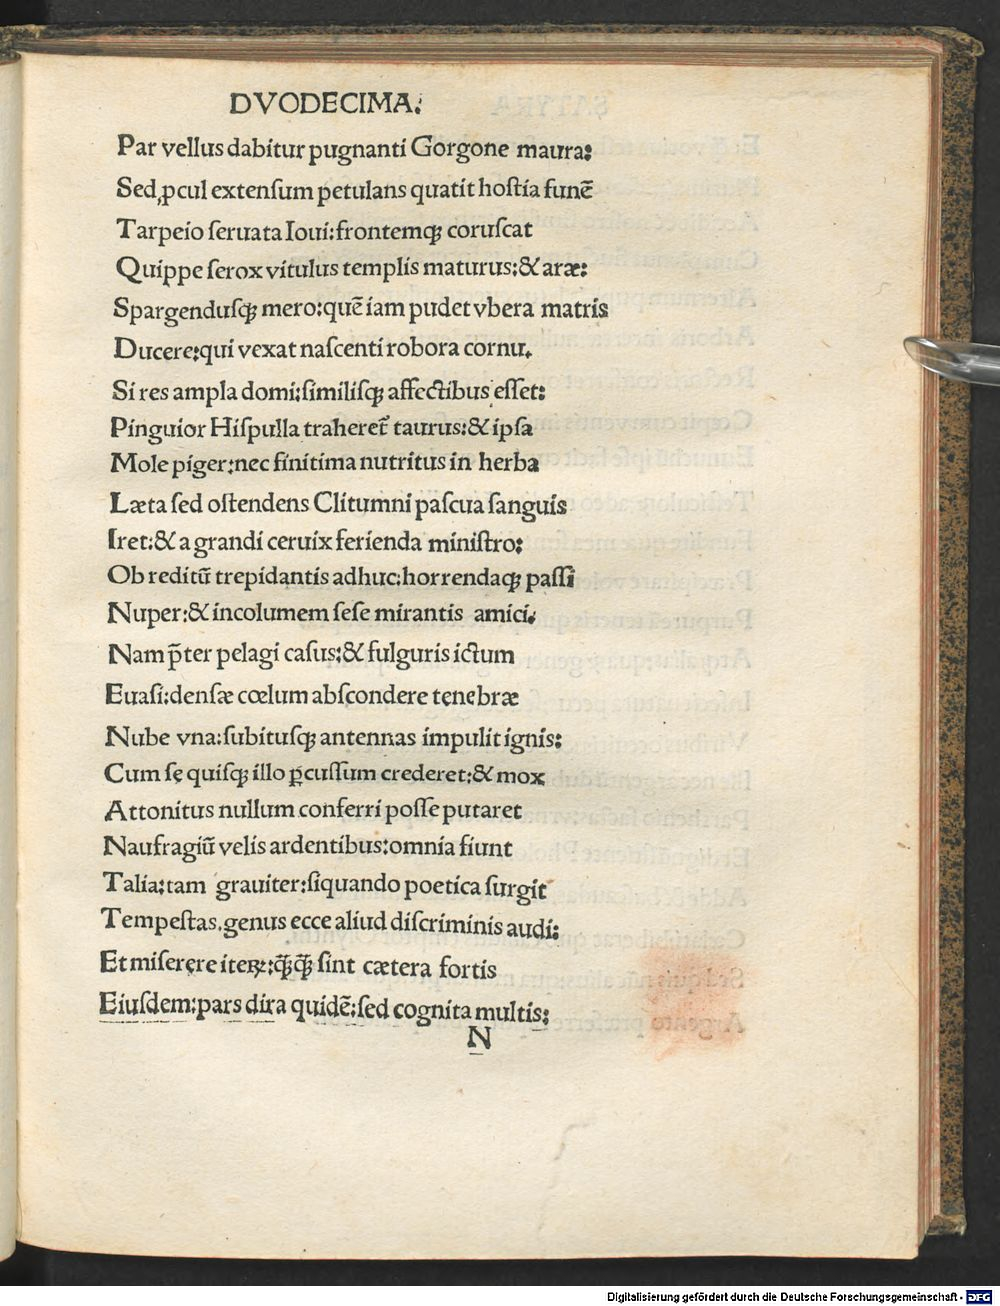 DVODECIMA.
Par vellus dabitur pugnanti Gorgone maura:
Sed ꝓcul extenſum petulans quatit hoſtia funē
Tarpeio ſeruata Ioui:frontemqꝫ coruſcat
Quippe ferox vitulus templis maturus:& aræ:
Spargenduſqꝫ mero:quē iam pudet vbera matris
Ducere:qui vexat naſcenti robora cornu.
Si res ampla domi:ſimiliſqꝫ affectibus eſſet:
Pinguior Hiſpulla traheret᷑ taurus:& ipſa
Mole piger:nec finitima nutritus in herba
Læta ſed oſtendens Clitumni paſcua ſanguis
Iret:& a grandi ceruix ferienda miniſtro:
Ob reditū trepidantis adhuc:horrendaqꝫ paſſi
Nuper:& incolumem ſeſe mirantis amici.
Nam p̄ter pelagi caſus:& fulguris ictum
Euaſi:denſæ cœlum abſcondere tenebræ
Nube vna:ſubituſqꝫ antennas impulit ignis:
Cum ſe quiſqꝫ illo ꝑcuſſum crederet:& mox
Attonitus nullum conferri poſſe putaret
Naufragiū velis ardentibus:omnia fiunt
Talia:tam grauiter:ſiquando poetica ſurgit
Tempeſtas.genus ecce aliud diſcriminis audi:
Et miſerere iteꝝ:qꝫ̄qꝫ̄ ſint cætera fortis
Eiuſdem:pars dira quidē:ſed cognita multis:
N
Digitalisierung gefördert durch die Deutsche Forschungsgemeinschaft - DFG